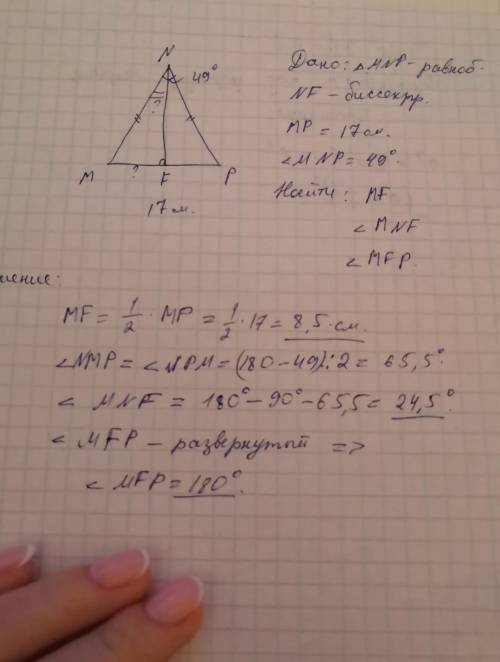 N
49°
?
M
?
F
P
17 м.
Дано: △MNP - равноб.
NF - биссектр.
MP = 17 см.
∠MNP = 49°.
Найти: MF
∠MNF
∠MFP.
шение:
MF = 1/2 · MP = 1/2 · 17 = 8,5 см.
∠NMP = ∠NPM = (180 - 49) : 2 = 65,5°.
∠MNF = 180° - 90° - 65,5 = 24,5°.
∠MFP - развернутый =>
∠MFP = 180°.